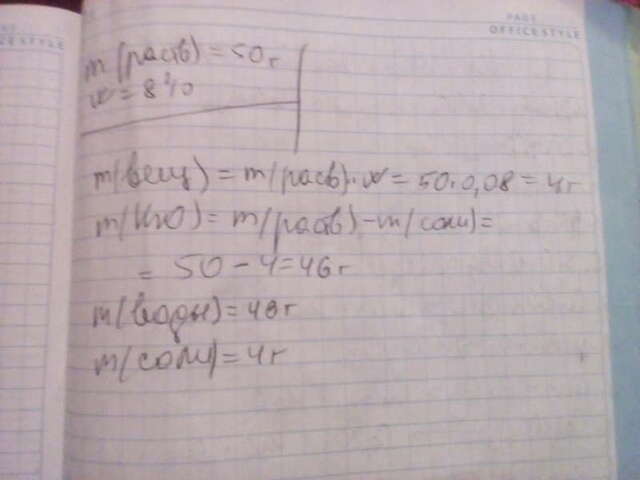 PAGE
OFFICE STYLE
CE STYLE
m(раств) = 50г
w = 8%
m(вещ) = m(раств)·w = 50·0,08 = 4г
m(H2O) = m(раств) - m(соли) =
= 50 - 4 = 46г
m(воды) = 46г
m(соли) = 4г